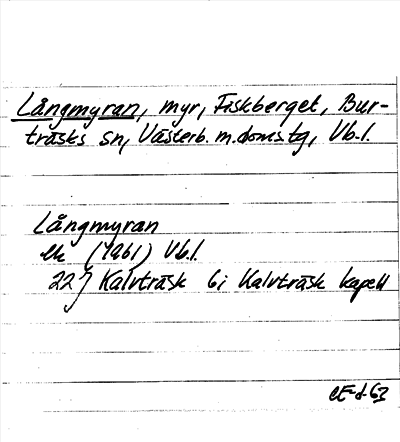 Långmyran, myr, Fiskberget, Bur-
träsks sn, Västerb. m. doms.tg, Vb.l.
Långmyran
ek (1961) Vb.l.
22J Kalvträsk 6i Kalvträsk kapell